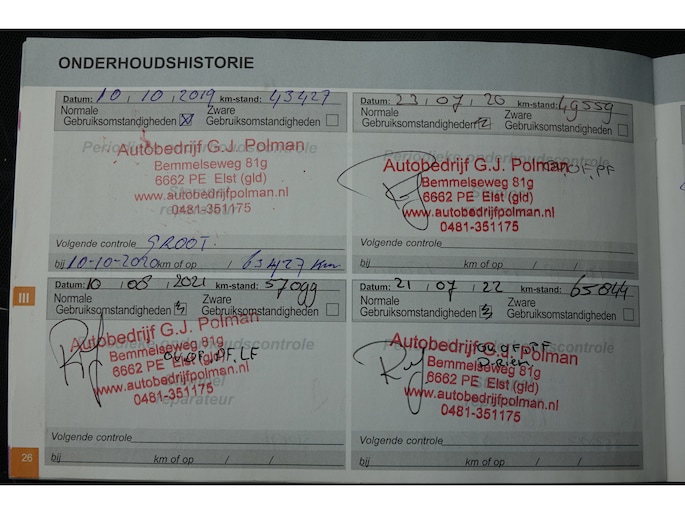 ONDERHOUDSHISTORIE
Datum: 10 / 10 / 2019 km-stand: 43427
Normale Zware
Gebruiksomstandigheden Gebruiksomstandigheden
Periodieke onderhoudscontrole
Autobedrijf G.J. Polman
Bemmelseweg 81g
6662 PE Elst (gld)
www.autobedrijfpolman.nl
0481-351175
Volgende controle GROOT.
bij 10-10-2020 km of op / 63427 km
Datum: 23 / 07 / 20 km-stand: 49559
Normale Zware
Gebruiksomstandigheden Gebruiksomstandigheden
Periodieke onderhoudscontrole
Autobedrijf G.J. Polman
OF, PF
Bemmelseweg 81g
6662 PE Elst (gld)
www.autobedrijfpolman.nl
0481-351175
Volgende controle
bij km of op / /
III
Datum: 10 / 08 / 2021 km-stand: 57099
Normale Zware
Gebruiksomstandigheden Gebruiksomstandigheden
Autobedrijf G.J. Polman
Bemmelseweg 81g
6662 PE Elst (gld)
www.autobedrijfpolman.nl
0481-351175
Volgende controle
bij km of op / /
Datum: 21 / 07 / 22 km-stand: 65844
Normale Zware
Gebruiksomstandigheden Gebruiksomstandigheden
Autobedrijf G.J. Polman
Bemmelseweg 81g
6662 PE Elst (gld)
www.autobedrijfpolman.nl
0481-351175
Volgende controle
bij km of op / /
26